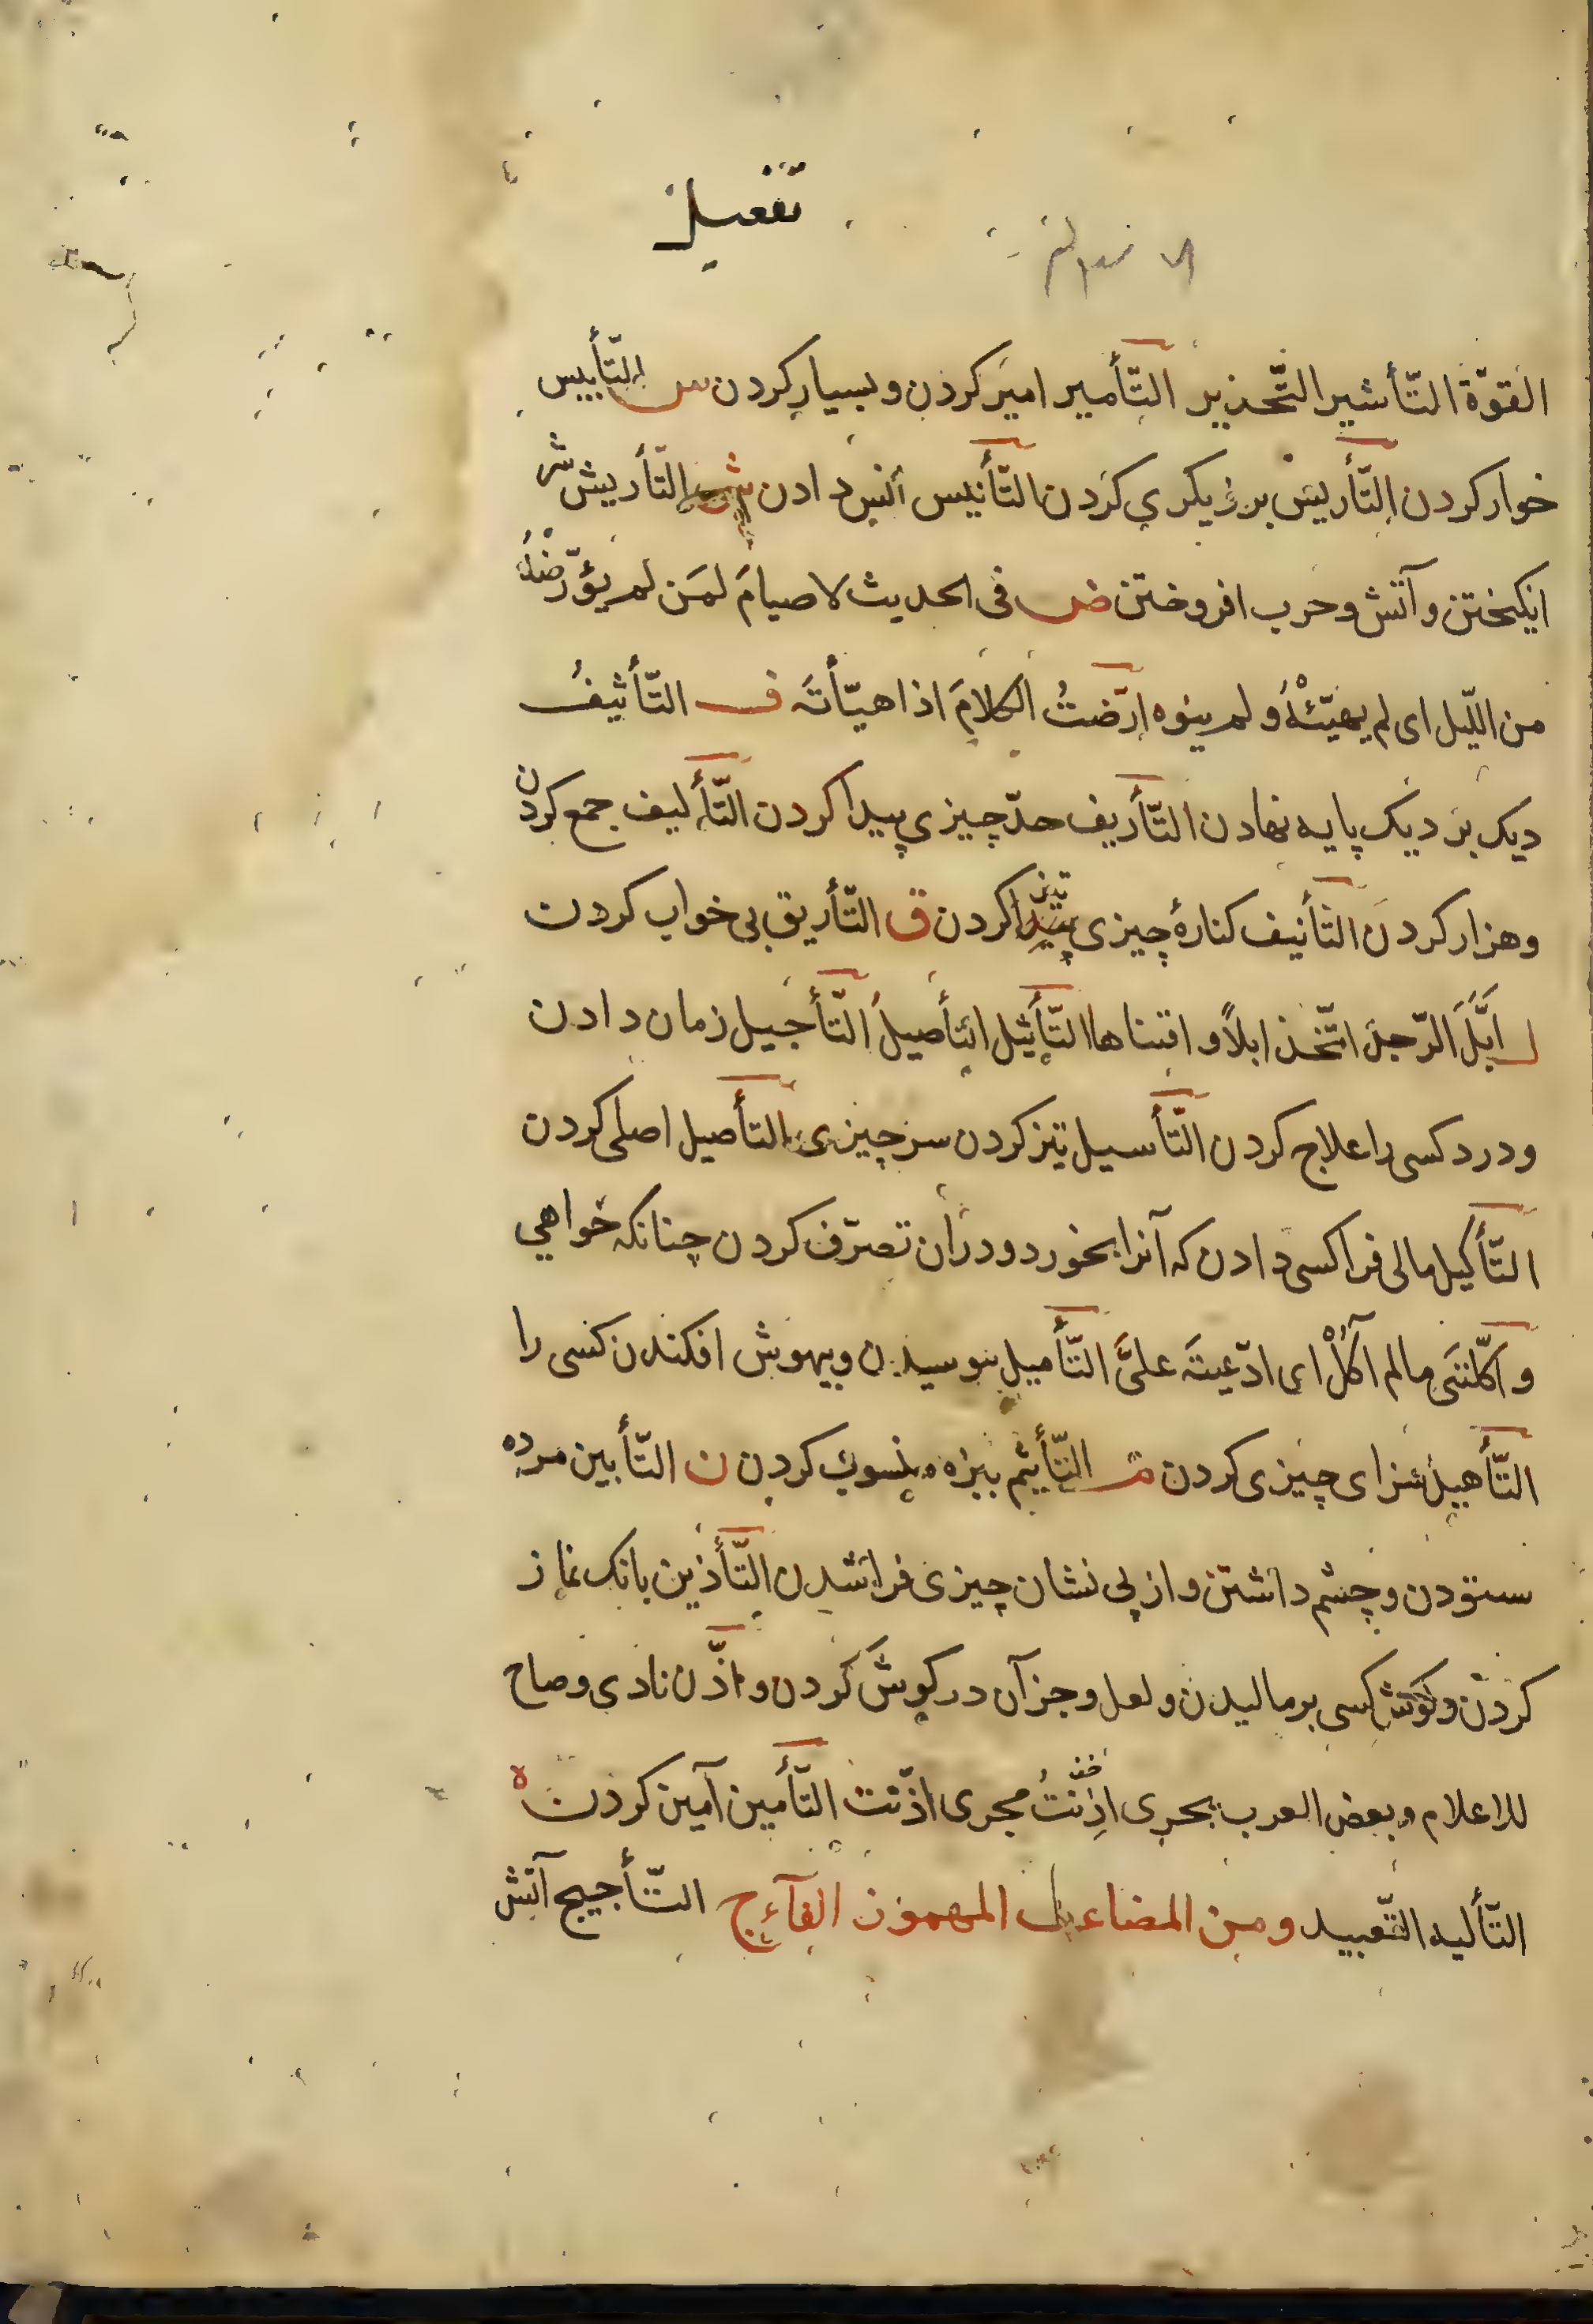 تفعيل
القوّة التّأشير التّحذير التّأمير امير كردن و بسيار كردن س التّأبيس
خوار كردن التّأريس برزيكري كردن التّأنيس انس دادن ش التّأريش شر
انكيختن و آتش و حرب افروختن ض فى الحديث لا صيامَ لمَن لم يؤرّضهُ
من اللّيل اى لم يهيّئْهُ و لم ينوه ارّضتُ الكلامَ اذا هيّأتَه ف التّأثيفُ
ديک بر ديک پايه نهادن التّأريف حدّ چيزى پيدا كردن التّأليف جمع كردن
و هزار كردن التّأنيف كنارهٔ چيزى تيز كردن ق التّأريق بى خواب كردن
ل ابَّلَ الرّجلُ اتّخذ ابلًا و اقتناها التّأثيل التأصيلُ التّأجيل زمان دادن
و درد كسى را علاج كردن التّأسيل تيز كردن سر چيزى التأصيل اصلى كردن
التّأكيل مالى فرا كسى دادن كه آنرا بخورد و دران تصرّف كردن چنانكه خواهي
و اكّلتنى مالم آكلْ اى ادّعيتَه علىَّ التّأميل بيوسيدن و بيهوش افكندن كسى را
التّأهيل سزاى چيزى كردن م التّأثيم ببزه منسوب كردن ن التّأبين مرده
ستودن و چشم داشتن و از پى نشان چيزى فرا شدن التّأذين بانک نماز
كردن و كوش كسى برماليدن و لعل و جز آن در كوش كردن و اذّن نادى و صاح
للاعلام و بعض العرب يجرى اذِنتُ مجرى اذّنت التّأمين آمين كردن ه
التّأليه التّعبيد و من المضاعف المهموز الفآء ج التّأجيج آتش